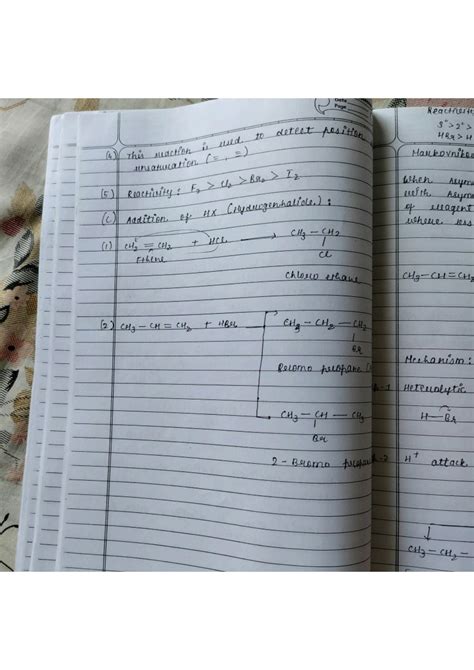 Date
Page
(4) This reaction is used to detect position
unsaturation (=, ≡)
(5) Reactivity: F₂ > Cl₂ > Br₂ > I₂
(C) Addition of HX (Hydrogenhalide):
(1) CH₂ = CH₂ + HCl → CH₃ – CH₂
Ethene
Cl
Chloro ethane
(2) CH₃ – CH = CH₂ + HBr → CH₃ – CH₂ – CH₂
Br
Bromo propane
CH₃ – CH – CH₃
Br
2 – Bromo
Reactivity
3° > 2° >
HBr > H
Markovniko
When asym
with asym
of reagent
where
CH₃ – CH = CH₂
Mechanism:
Heterolytic
H – Br
H⁺ attack
CH₃ – CH₂ –